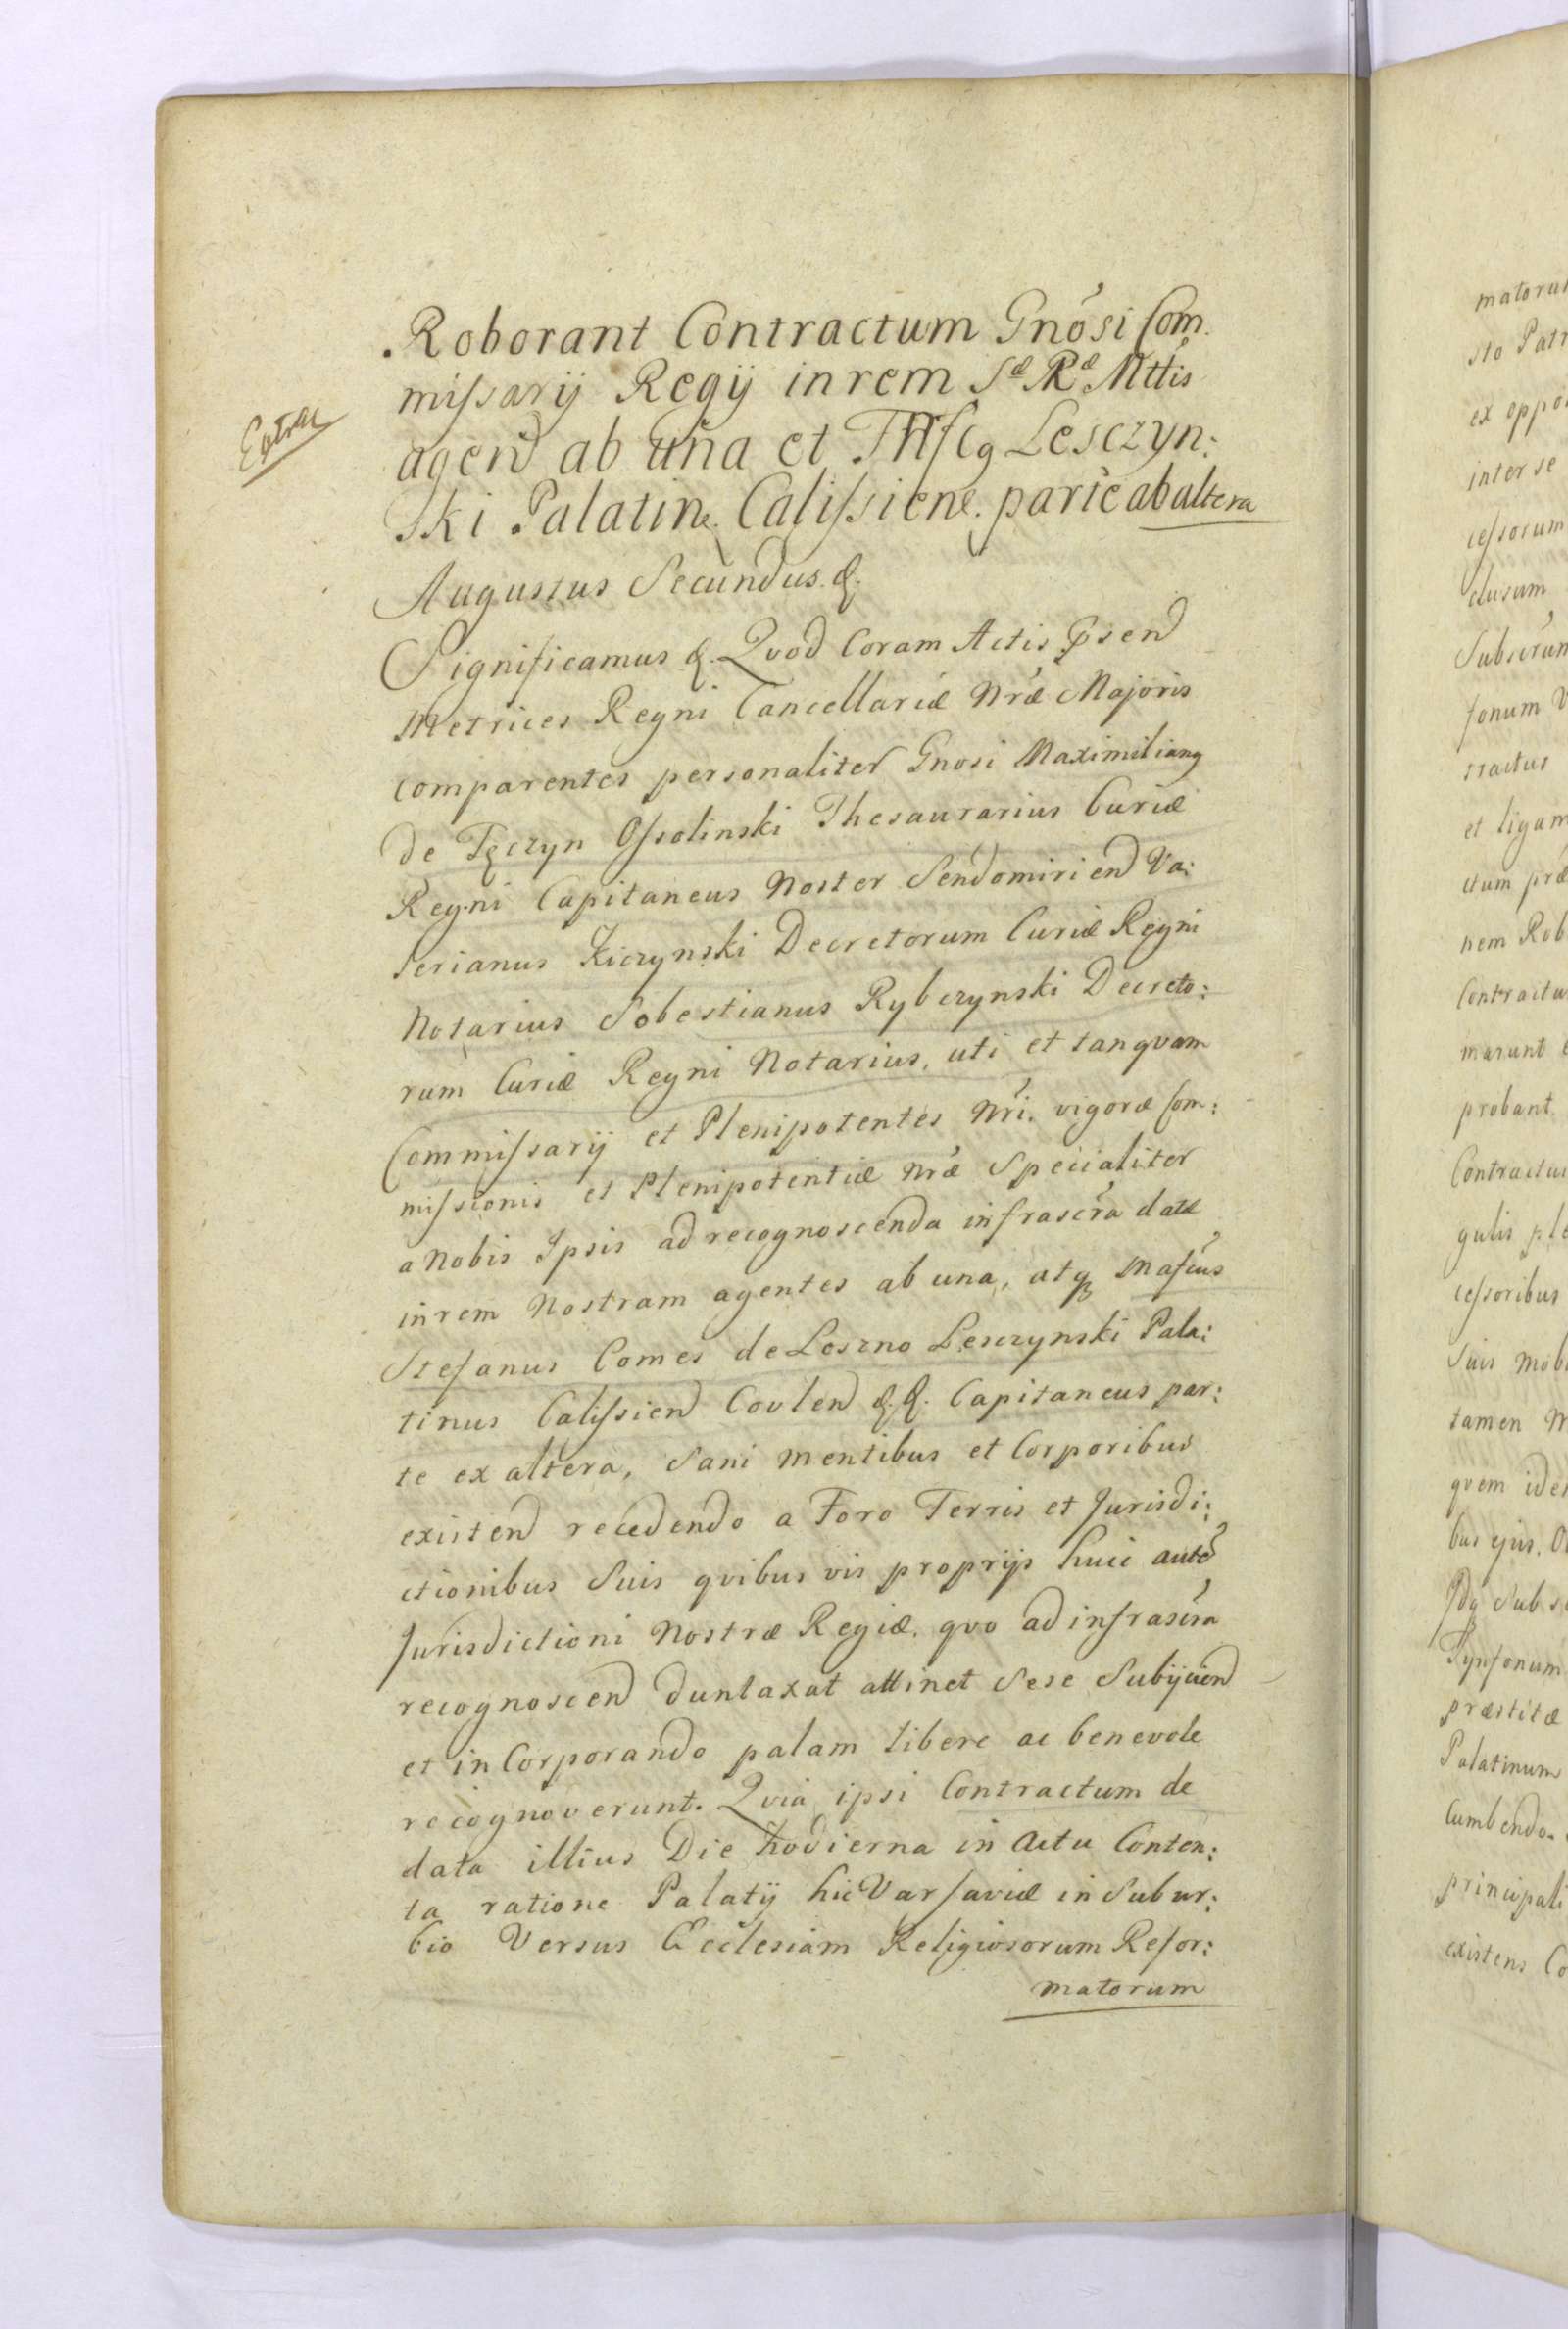 Roborant Contractum Gnosi Com.
missarij Regij in rem Sæ Ræ Mttis
agend ab una et Lesczyn:
ski Palatin. Calissiene. parte ab altera
Extra
Augustus Secundus &.
Significamus &. Qvod Coram Actis psend
Metrices Regni Cancellariæ Nræ Majoris
comparentes personaliter Gnosi Maximilianq
de Tęczyn Ossolinski Thesaurarius Curiæ
Regni Capitaneus Noster Sendomiriend Va:
lerianus Kiczynski Decretorum Curiæ Regni
Notarius Sobestianus Rybczynski Decreto:
rum Curiæ Regni Notarius, uti et tanqvam
Commissarij et Plenipotentes Nri. vigoræ Com:
missionis et Plenipotentiæ Nræ Specialiter
a Nobis Ipsis ad recognoscenda infrascra datæ
in rem Nostram agentes ab una, atq
Stefanus Comes de Leszno Lesczynski Pala:
tinus Calissiend Covlend &.&. Capitaneus par:
te ex altera, Sani mentibus et Corporibus
existend recedendo a Foro Terris et Jurisdi:
ctionibus Suis qvibus vis proprijs huic aute
Jurisdictioni Nostræ Regiæ. qvo ad infrascra
recognoscend duntaxat attinet Sese Subijciend
et in Corporando palam libere ac benevole
recognoverunt. Qvia ipsi Contractum de
data illius Die hodierna in Actu Conten:
ta ratione Palatij hic Varsaviæ in Subur:
bio Versus Ecclesiam Religiosorum Refor:
matorum
sto Patr
ex oppo
inter se
cessorum
clusum
Subscrun
sonum V
ctractus
et ligam
ctum præ
nem Rob
Contractu
marunt e
probant.
Contractus
gulis ple
cessoribus
Suis mob
tamen M
qvem iden
bus ejus. O
præstitæ
Palatinum
Cumbendo.
principali
existens Co